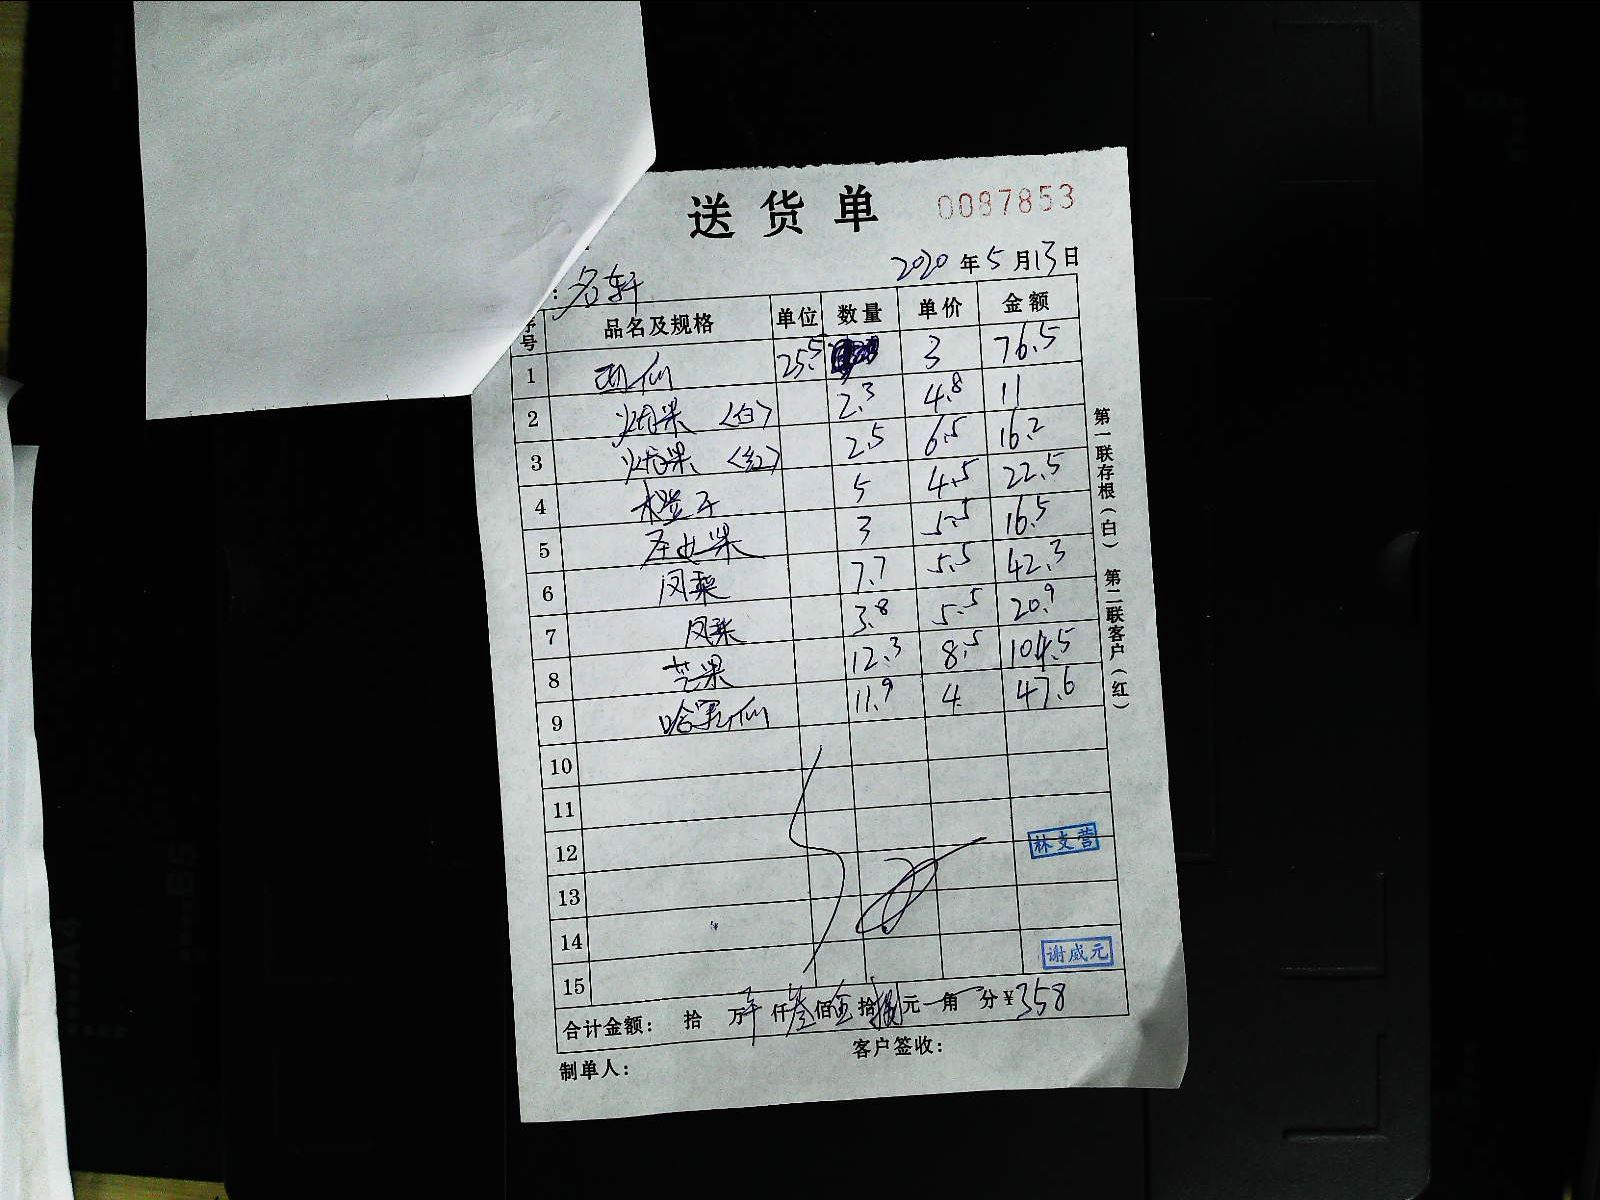 送货单 0087853
2020年5月13日
：名轩
序号 品名及规格 单位 数量 单价 金额
1 西仙 25.5 3 76.5
2 火龙果〈白〉 2.3 4.8 11
3 火龙果〈红〉 2.5 6.5 16.2
4 橙子 5 4.5 22.5
5 圣女果 3 5.5 16.5
6 凤梨 7.7 5.5 42.3
7 3.8 5.5 20.9
8 芒果 12.3 8.5 104.5
9 哈密仙 11.9 4 47.6
10
11
12 林支营
13
14 谢威元
15
合计金额： 拾 万 仟叁佰伍拾捌元 角 分¥358
制单人： 客户签收：
第一联存根（白） 第二联客户（红）